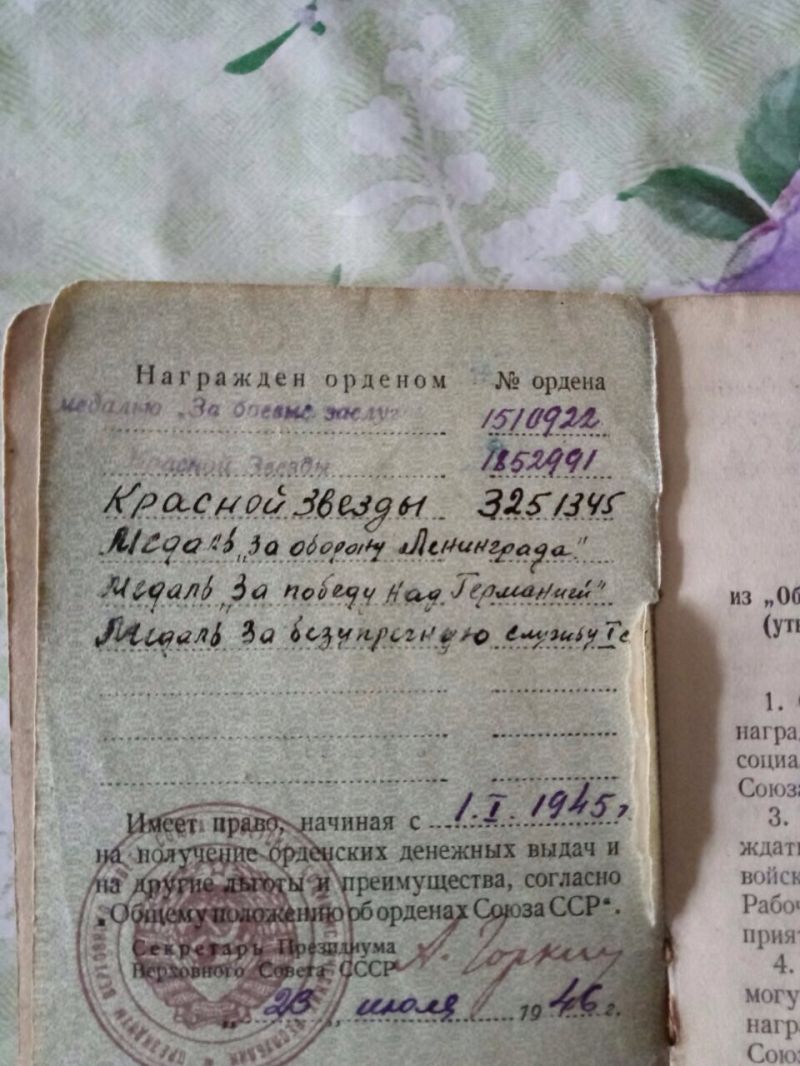 Награжден орденом № ордена
медалью „За боевые заслуг 1510922
Красной Звезды 1852991
Красной Звезды 3251345
Медаль „За оборону Ленинграда"
Медаль „За победу над Германией"
Медаль За безупречную службу I с
Имеет право, начиная с 1.I. 1945г
на получение орденских денежных выдач и
на другие льготы и преимущества, согласно
„Общему положению об орденах Союза ССР".
Секретарь Президиума
Верховного Совета СССР А. Горкин
„23" июля 1946 г.
из „Об
(ут
1.
награ
социа
Союза
3.
ждат
войск
Рабоч
прият
4.
могу
нагр
Союз